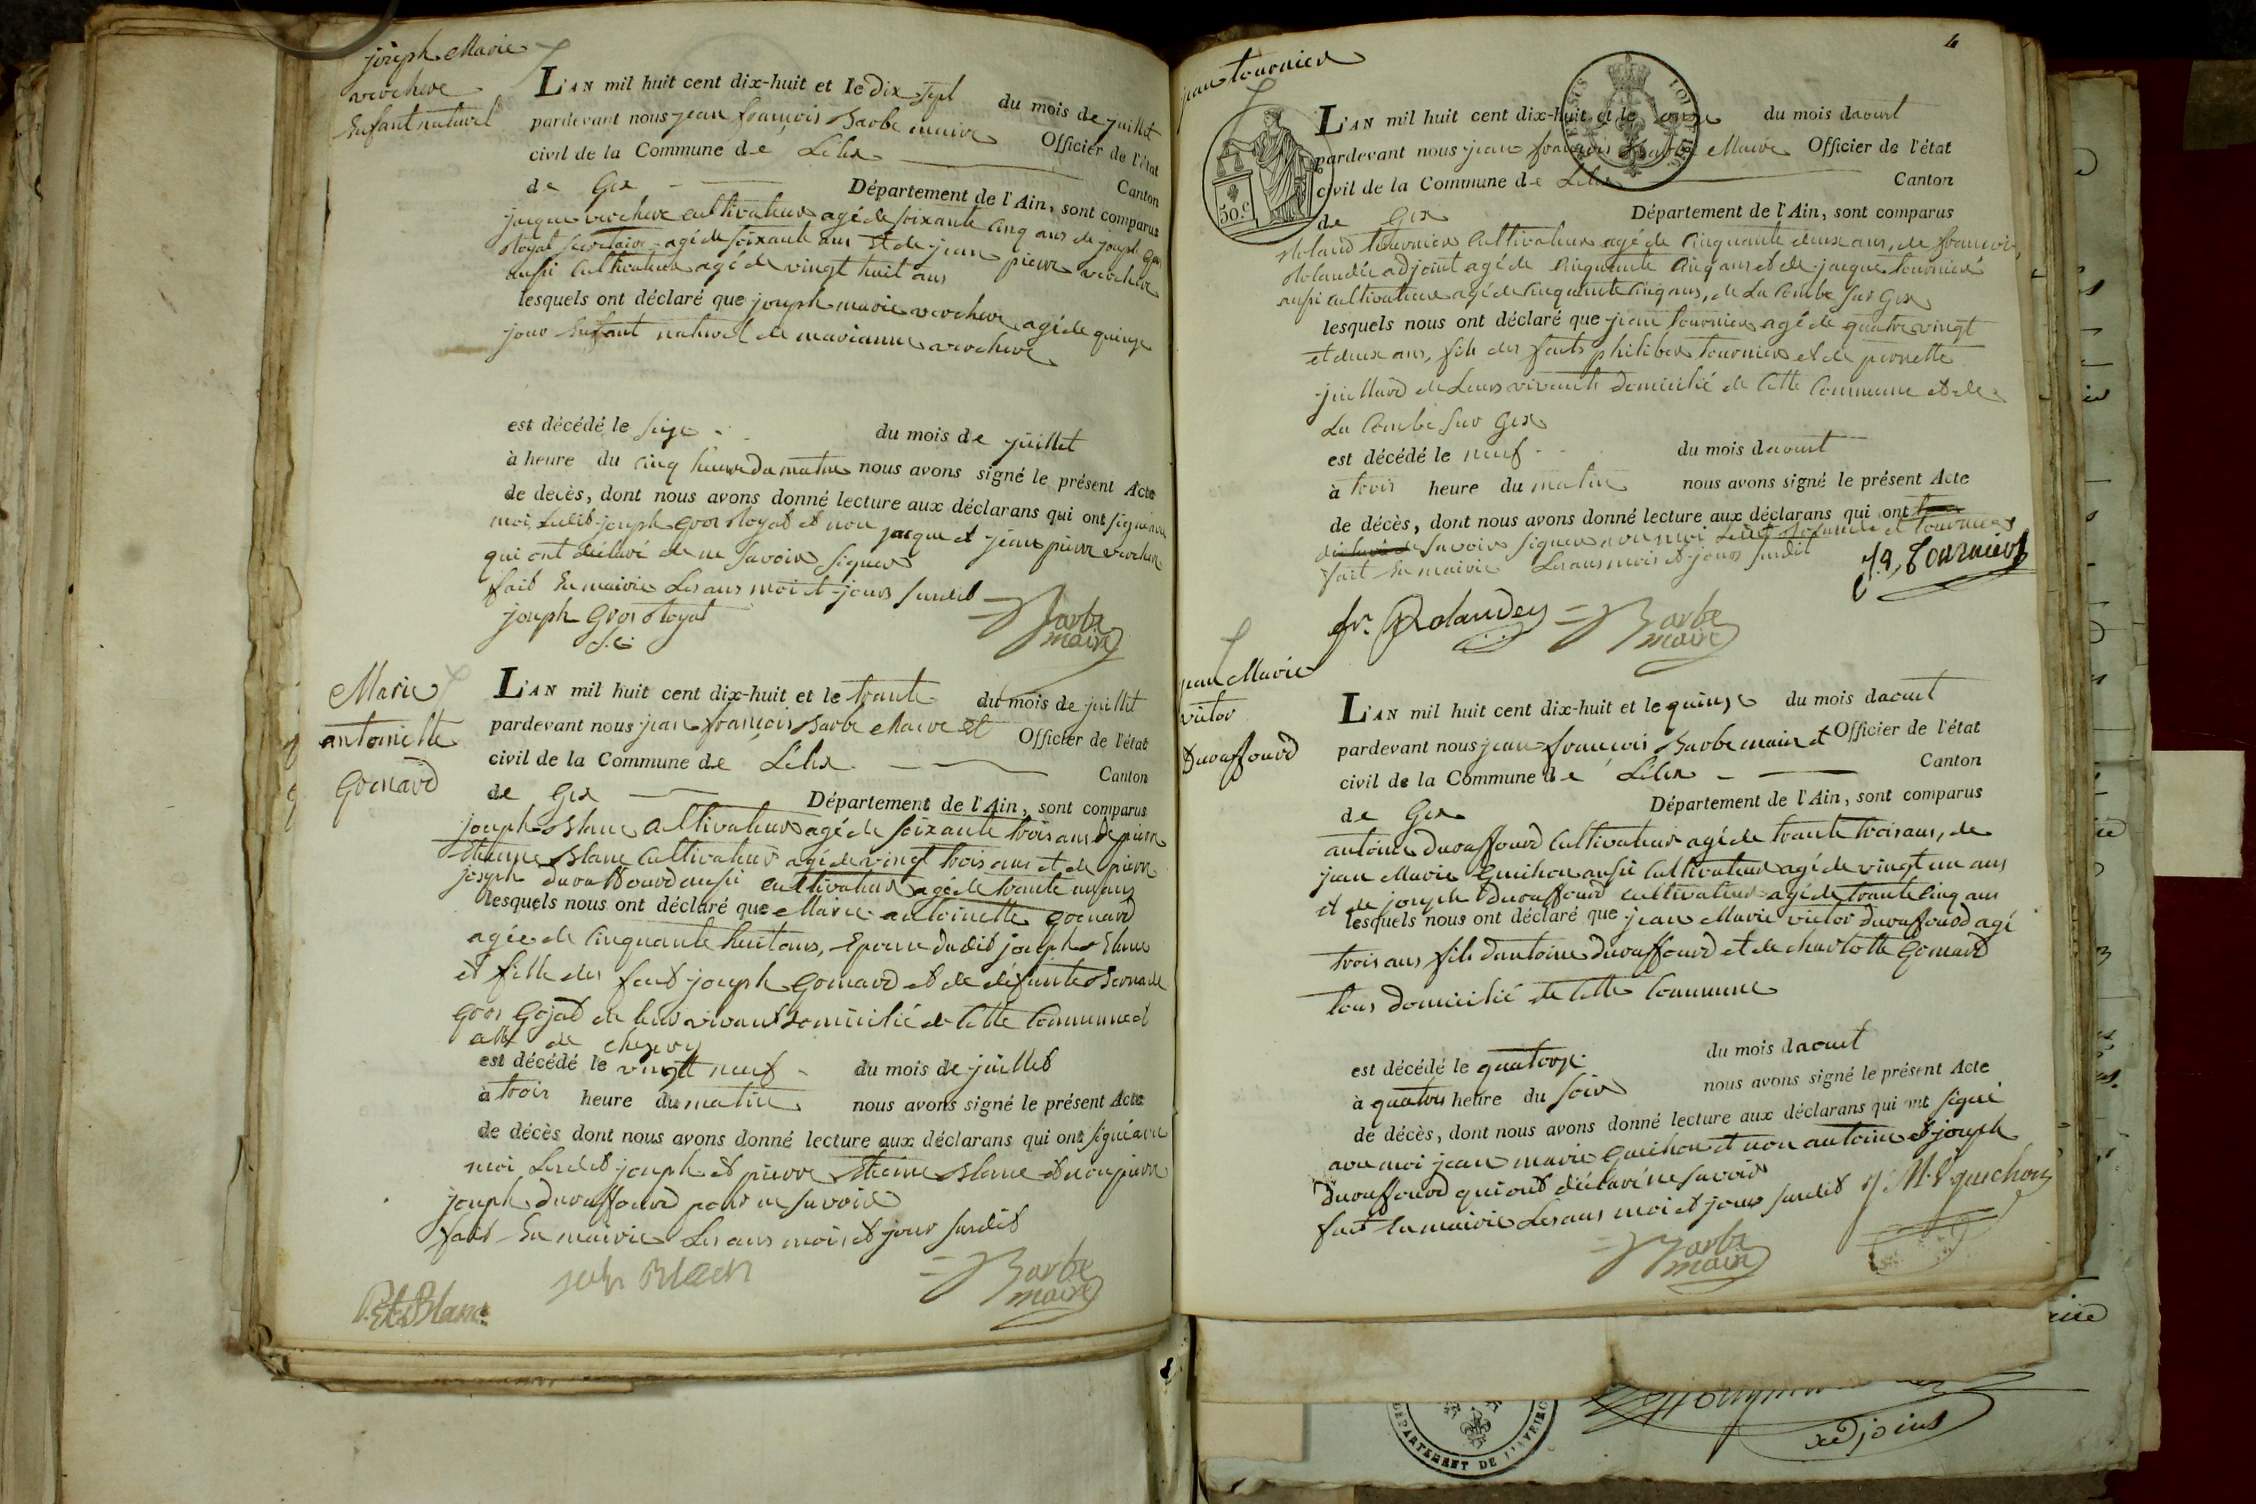 joseph Marie
vrochere
Enfant naturel
L'AN mil huit cent dix-huit et le dix sept du mois de juillet
pardevant nous jean francois Barbe maire Officier de l'état
civil de la Commune de Lélex Canton
de Gex Département de l'Ain, sont comparus
jacque cultivateur agé de soixante cinq ans de joseph gros
Royat secretaire agé de soixante ans et de jean pierre
aussi cultivateur agé de vingt huit ans
lesquels ont déclaré que joseph marie agé de quinze
jour Enfant naturel de marianne
est décédé le seize du mois de juillet
à heure du cinq heure du matin nous avons signé le présent Acte
de decès, dont nous avons donné lecture aux déclarans qui ont signé avec
moi, Ledit joseph gros Royat et non jacque et jean pierre
qui ont déclaré de ne savoir signer
fait En mairie Les ans moi et jours susdit
joseph Gros Royat Barbe
maire
Marie
antoinette
Goenard
L'AN mil huit cent dix-huit et le trante du mois de juillet
pardevant nous jean francois Barbe Maire et Officier de l'état
civil de la Commune de Lélex Canton
de Gex Département de l'Ain, sont comparus
joseph Blanc Cultivateur agé de soixante trois ans de pierre
Etienne Blanc Cultivateur agé de vingt trois ans et de pierre
joseph Duraffourd aussi cultivateur agé de trante un ans
lesquels nous ont déclaré que Marie antoinette goenard
agée de Cinquante huit ans, Epouse dudit joseph Blanc
et fille des feut joseph Goenard et de défunte Bernarde
gros gojat de leur vivant domicilié de Cette Commune et
de chezery
est décédé le vingtt neuf du mois de juillet
à trois heure du matin nous avons signé le présent Acte
de décès dont nous avons donné lecture aux déclarans qui ont signé avec
moi Lesdit joseph et pierre Etienne Blanc et non pierre
joseph Duraffourd pour ne savoir
fait En mairie Les ans mois et jour susdit
P. Et. Blanc Barbe
maire
4
jean tournier
50.c
L'AN mil huit cent dix-huit et le onze du mois daout
pardevant nous jean francois Barbe Maire Officier de l'état
civil de la Commune de Lélex Canton
de Gex Département de l'Ain, sont comparus
Roland tournier Cultivateur agé de Cinquante deux ans, de francois
Rolandée adjoint agé de Cinquante Cinq ans et de jacque tournier
aussi cultivateur agé de Cinquante Cinq ans, de La Combe sur Gex
lesquels nous ont déclaré que jean tournier agé de quatre vingt
et deux ans, fils des feuts philiber tournier et de pernette
juillard de Leurs vivants domicilié de Cette Commune et de
La Combe sur Gex
est décédé le neuf du mois daout
à trois heure du matin nous avons signé le présent Acte
de décès, dont nous avons donné lecture aux déclarans qui ont
savoir signer avec moi Ledit Rolandée et tournier
fait En mairie Les ans mois et jours susdit
Tournier
fr. Rolandey Barbe
maire
jean Marie
victor
Duraffourd
L'AN mil huit cent dix-huit et le quinze du mois daout
pardevant nous jean francois Barbe maire et Officier de l'état
civil de la Commune de Lélex Canton
de Gex Département de l'Ain, sont comparus
antoine Duraffourd Cultivateur agé de trante trois ans, de
jean Marie Guichon aussi Cultivateur agé de vingt un ans
et de joseph Duraffourd cultivateur agé de trante Cinq ans
lesquels nous ont déclaré que jean Marie victor Duraffourd agé
trois ans fils dantoine Duraffourd et de charlotte Goenard
tous domicilié de Cette Commune
est décédé le quatorze du mois daout
à quatres heure du soir nous avons signé le présent Acte
de décès, dont nous avons donné lecture aux déclarans qui ont signé
avec moi jean marie Guichon et non antoine et joseph
Duraffourd qui ont déclaré ne savoir
fait En mairie Les ans moi et jour susdit J M guichon
Barbe
maire
DÉPARTEMENT DE L'AVEYRON
adjoint